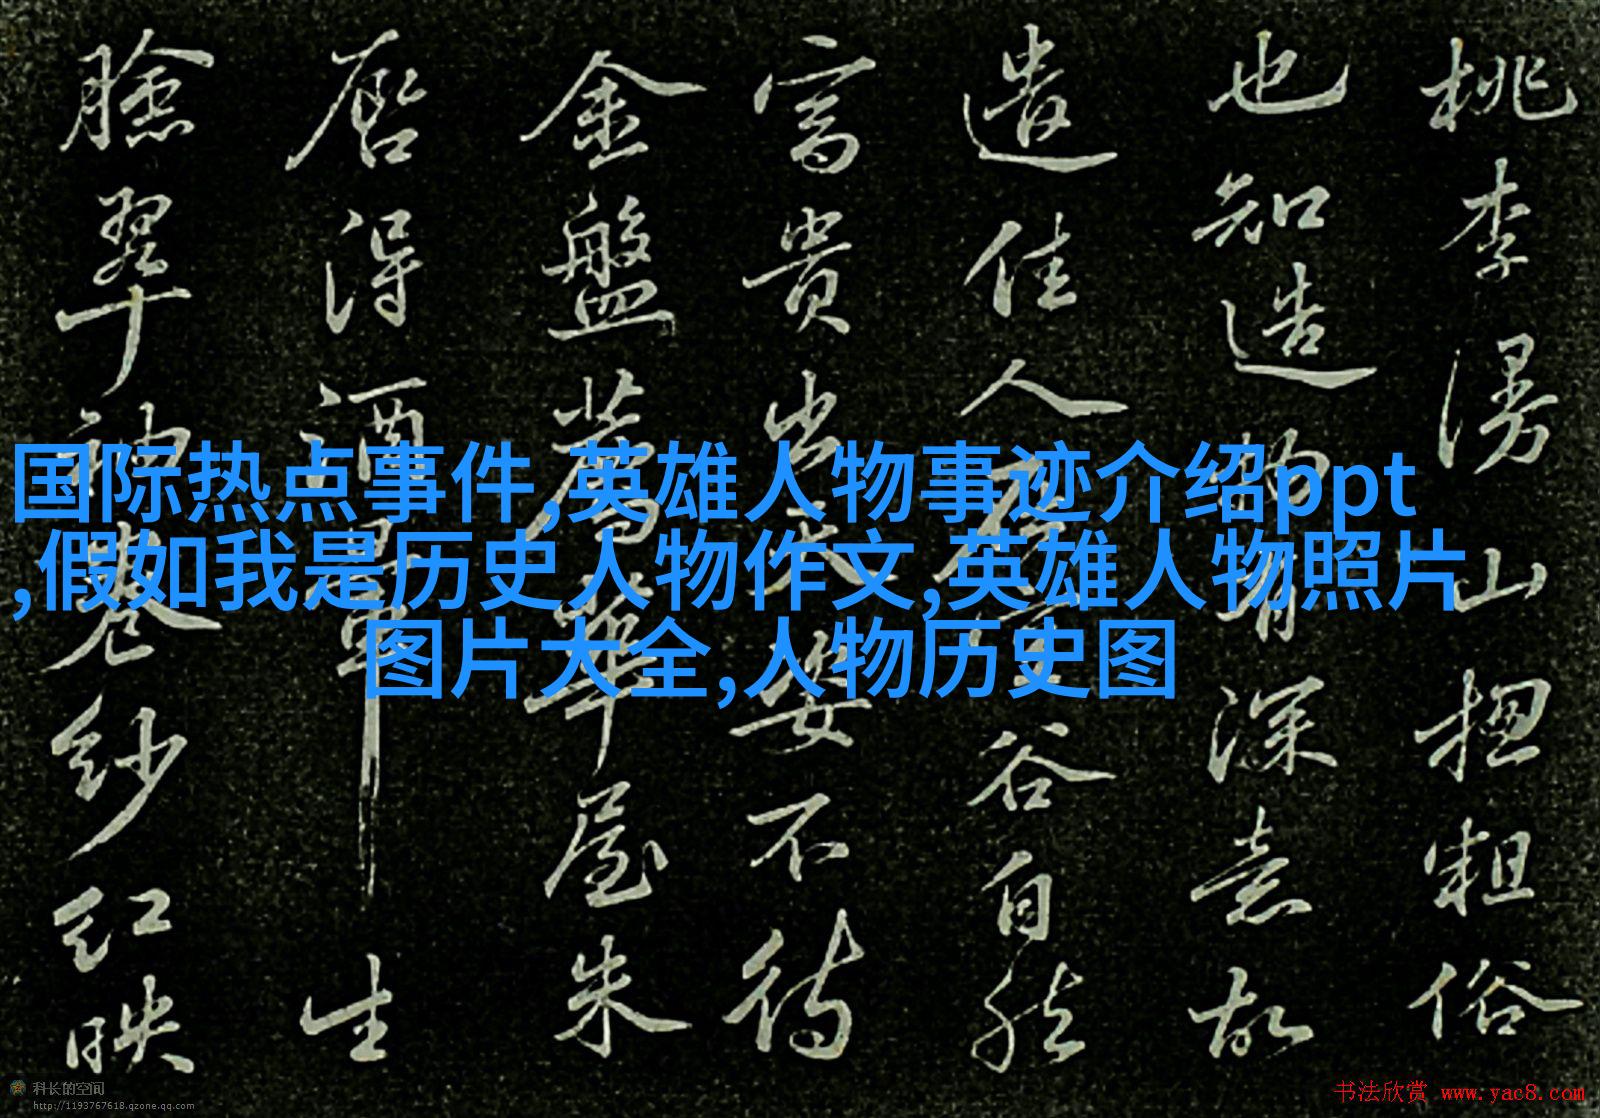 桃李漫山揔粗俗
也知造物有深意故
遣佳人在空谷自然
富貴出天姿不待
金盤薦華屋朱
唇得酒暈生
臉翠袖卷紗紅映
国际热点事件,英雄人物事迹介绍ppt
,假如我是历史人物作文,英雄人物照片
图片大全,人物历史图
科长的空间
http://1193767618.qzone.qq.com
书法欣赏 www.yac8.com